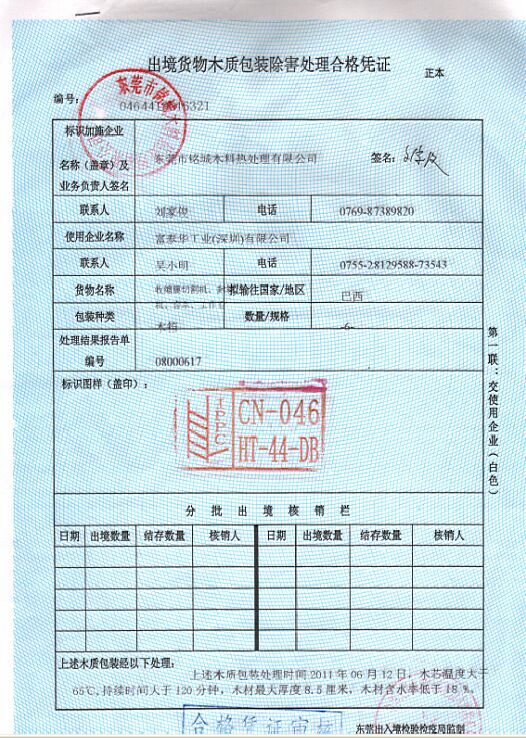 出境货物木质包装除害处理合格凭证
正本
编号：
标识加施企业
名称（盖章）及
业务负责人签名
东莞市铭城木料热处理有限公司
签名：
联系人 刘家俊 电话 0769-87389820
使用企业名称 富泰华工业(深圳)有限公司
联系人 吴小明 电话 0755-28129588-73543
货物名称 拟输往国家/地区 巴西
包装种类 木箱 数量/规格 -6-
处理结果报告单
编号 08000617
标识图样（盖印）：
IPPC
CN-046
HT-44-DB
第一联：交使用企业（白色）
分批出境核销栏
日期 出境数量 结存数量 核销人 日期 出境数量 结存数量 核销人
上述木质包装经以下处理：
上述木质包装处理时间 2011 年 06 月 12 日，木芯温度大于
65℃,持续时间大于 120 分钟，木材最大厚度 8.5 厘米，木材含水率低于 18 %。
合格凭证审核
东莞出入境检验检疫局监制